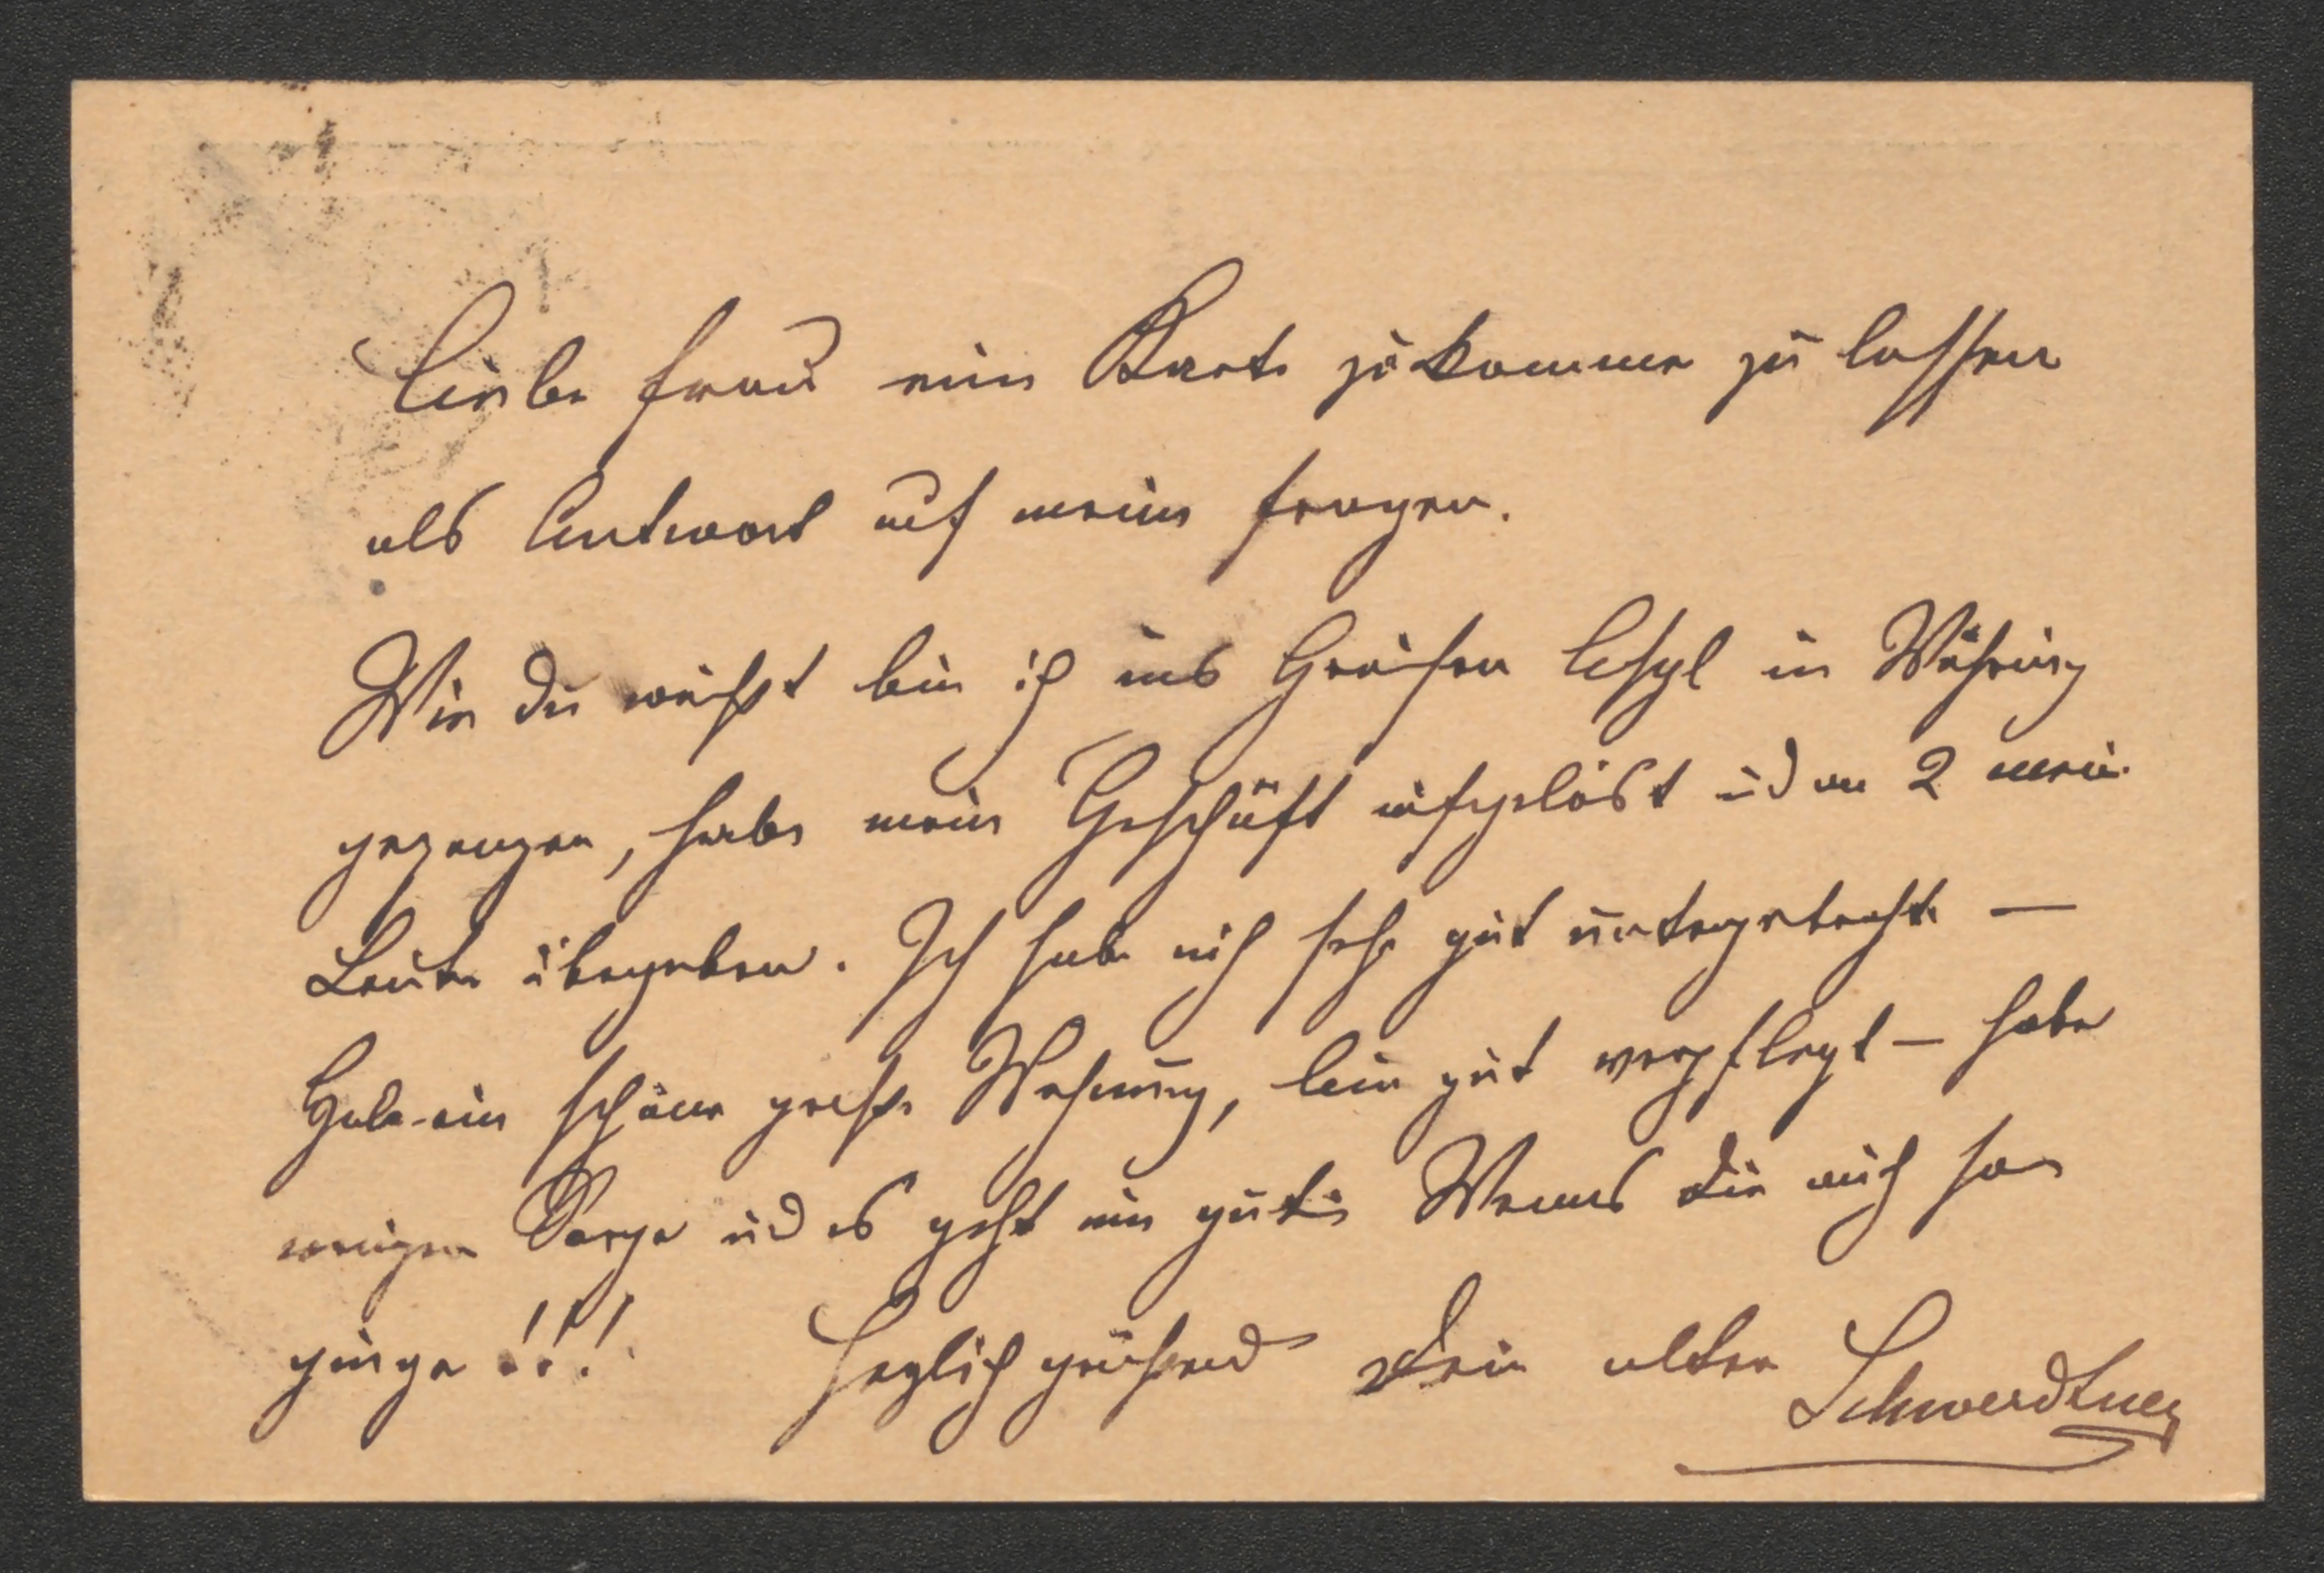 Liebe Frau eine Karte zukommen zu lassen
als Antwort auf meine Fragen.
Wie du weißt bin ich ins Greisen Asyl in Währing
gegangen, habe mein Geschäft aufgelöst und an 2 meine
Leute übergeben. Ich habe mich sehr gut untergebracht —
Habe eine schöne große Wohnung, bin gut verpflegt — habe
wenigen Sorgen und es geht mir gut Wenns dir auch so
ginge !!!. Herzlich grüßend Dein alter Schwerdtner